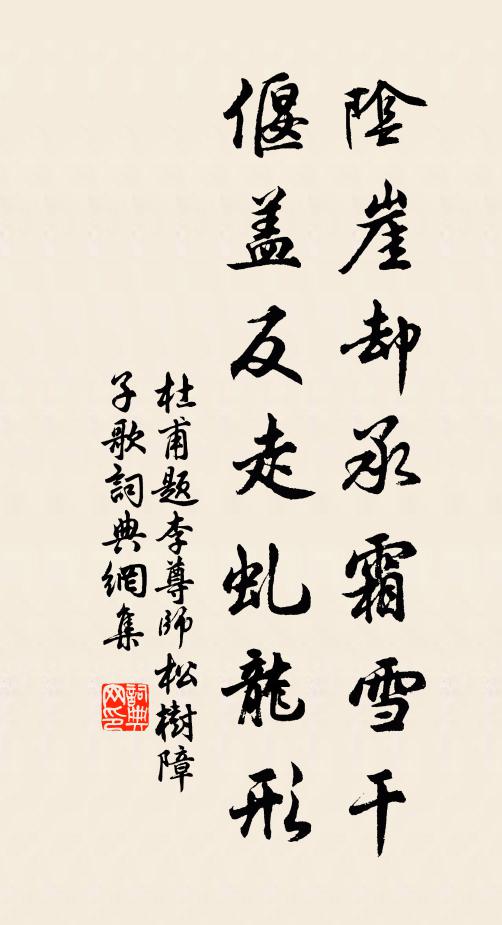 陰崖却承霜雪干
偃盖反走虬龍形
杜甫題李尊師松樹障
子歌詞典網集
詞典网印